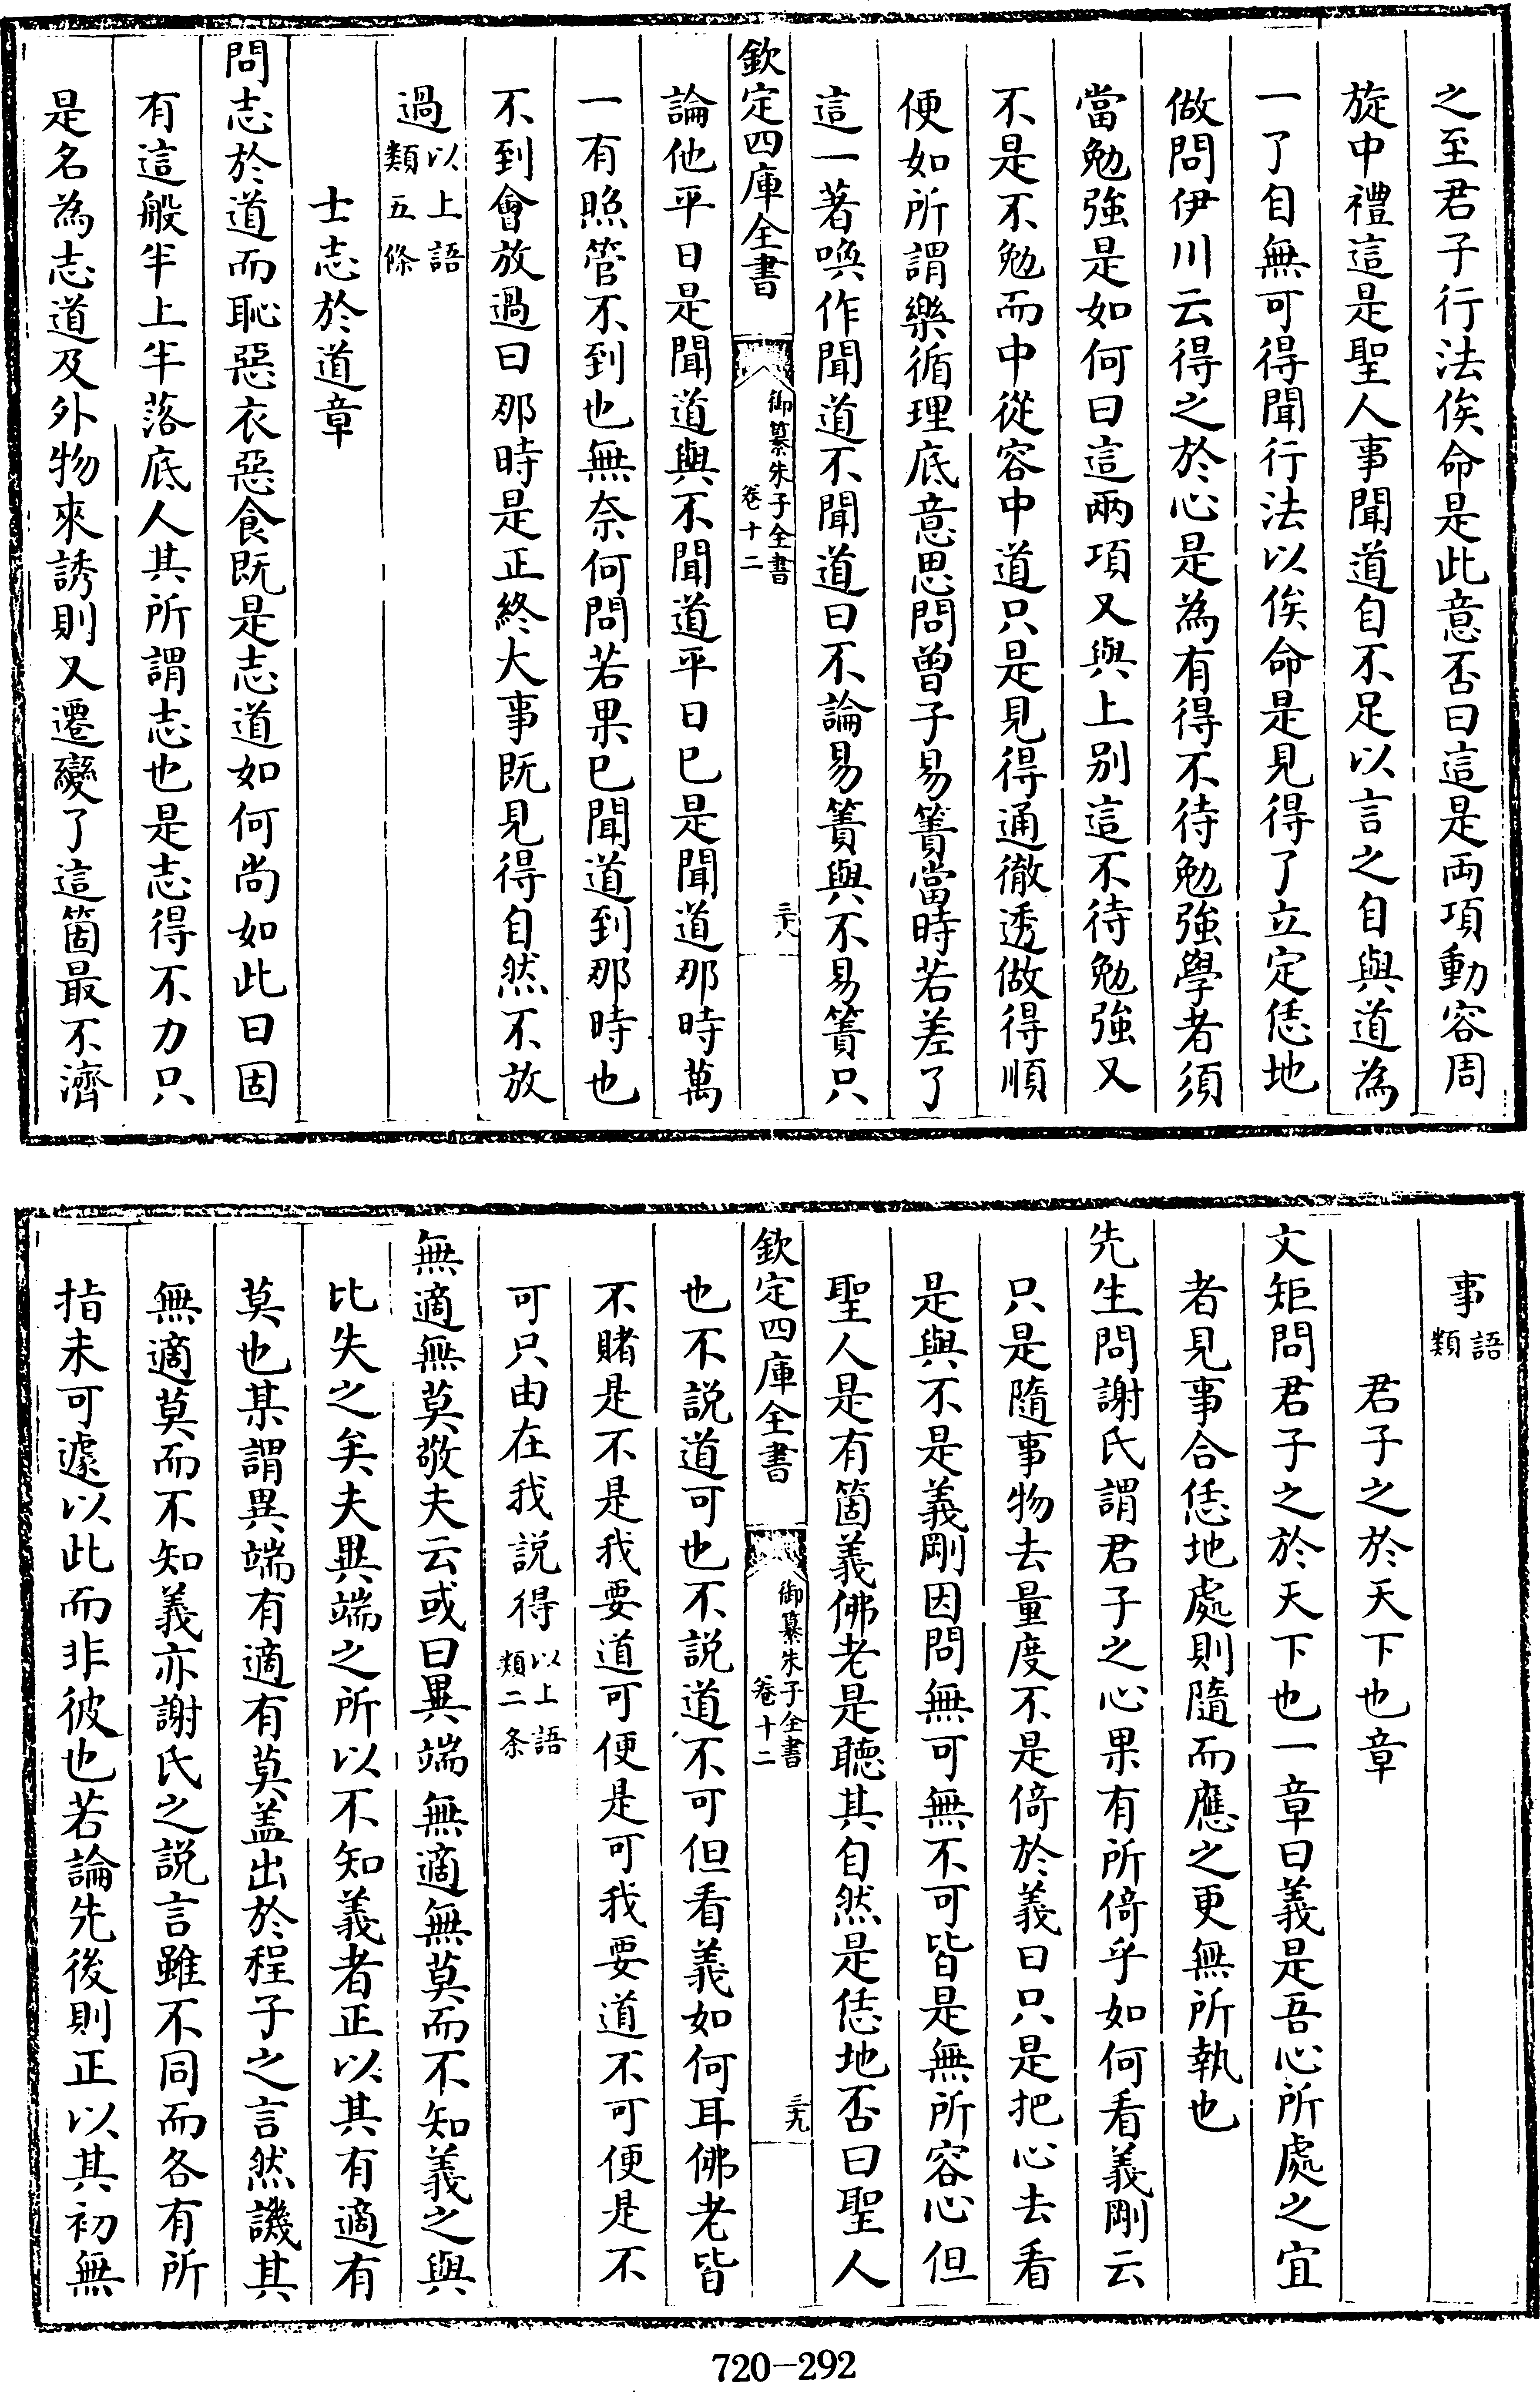 之至君子行法俟命是此意否曰這是両項動容周
旋中禮這是聖人事聞道自不足以言之自與道為
一了自無可得聞行法以俟命是見得了立定恁地
做問伊川云得之於心是為有得不待勉強學者須
當勉強是如何曰這兩項又與上别這不待勉強又
不是不勉而中從容中道只是見得通徹透做得順
便如所謂樂循理底意思問曾子易簀當時若差了
這一著喚作聞道不聞道曰不論易簀與不易簀只
欽定四庫全書
御纂朱子全書
卷十二
三八
論他平日是聞道與不聞道平日已是聞道那時萬
一有照管不到也無奈何問若果已聞道到那時也
不到會放過曰那時是正終大事既見得自然不放
過以上語類五條
士志於道章
問志於道而恥惡衣惡食既是志道如何尚如此曰固
有這般半上半落底人其所謂志也是志得不力只
是名為志道及外物來誘則又遷變了這箇最不濟
事語類
君子之於天下也章
文矩問君子之於天下也一章曰義是吾心所處之宜
者見事合恁地處則隨而應之更無所執也
先生問謝氏謂君子之心果有所倚乎如何看義剛云
只是隨事物去量度不是倚於義曰只是把心去看
是與不是義剛因問無可無不可皆是無所容心但
聖人是有箇義佛老是聽其自然是恁地否曰聖人
欽定四庫全書
御纂朱子全書
卷十二
三九
也不説道可也不説道不可但看義如何耳佛老皆
不賭是不是我要道可便是可我要道不可便是不
可只由在我説得以上語類二条
無適無莫敬夫云或曰異端無適無莫而不知義之與
比失之矣夫異端之所以不知義者正以其有適有
莫也某謂異端有適有莫盖出於程子之言然譏其
無適莫而不知義亦謝氏之説言雖不同而各有所
指未可遽以此而非彼也若論先後則正以其初無
720-292